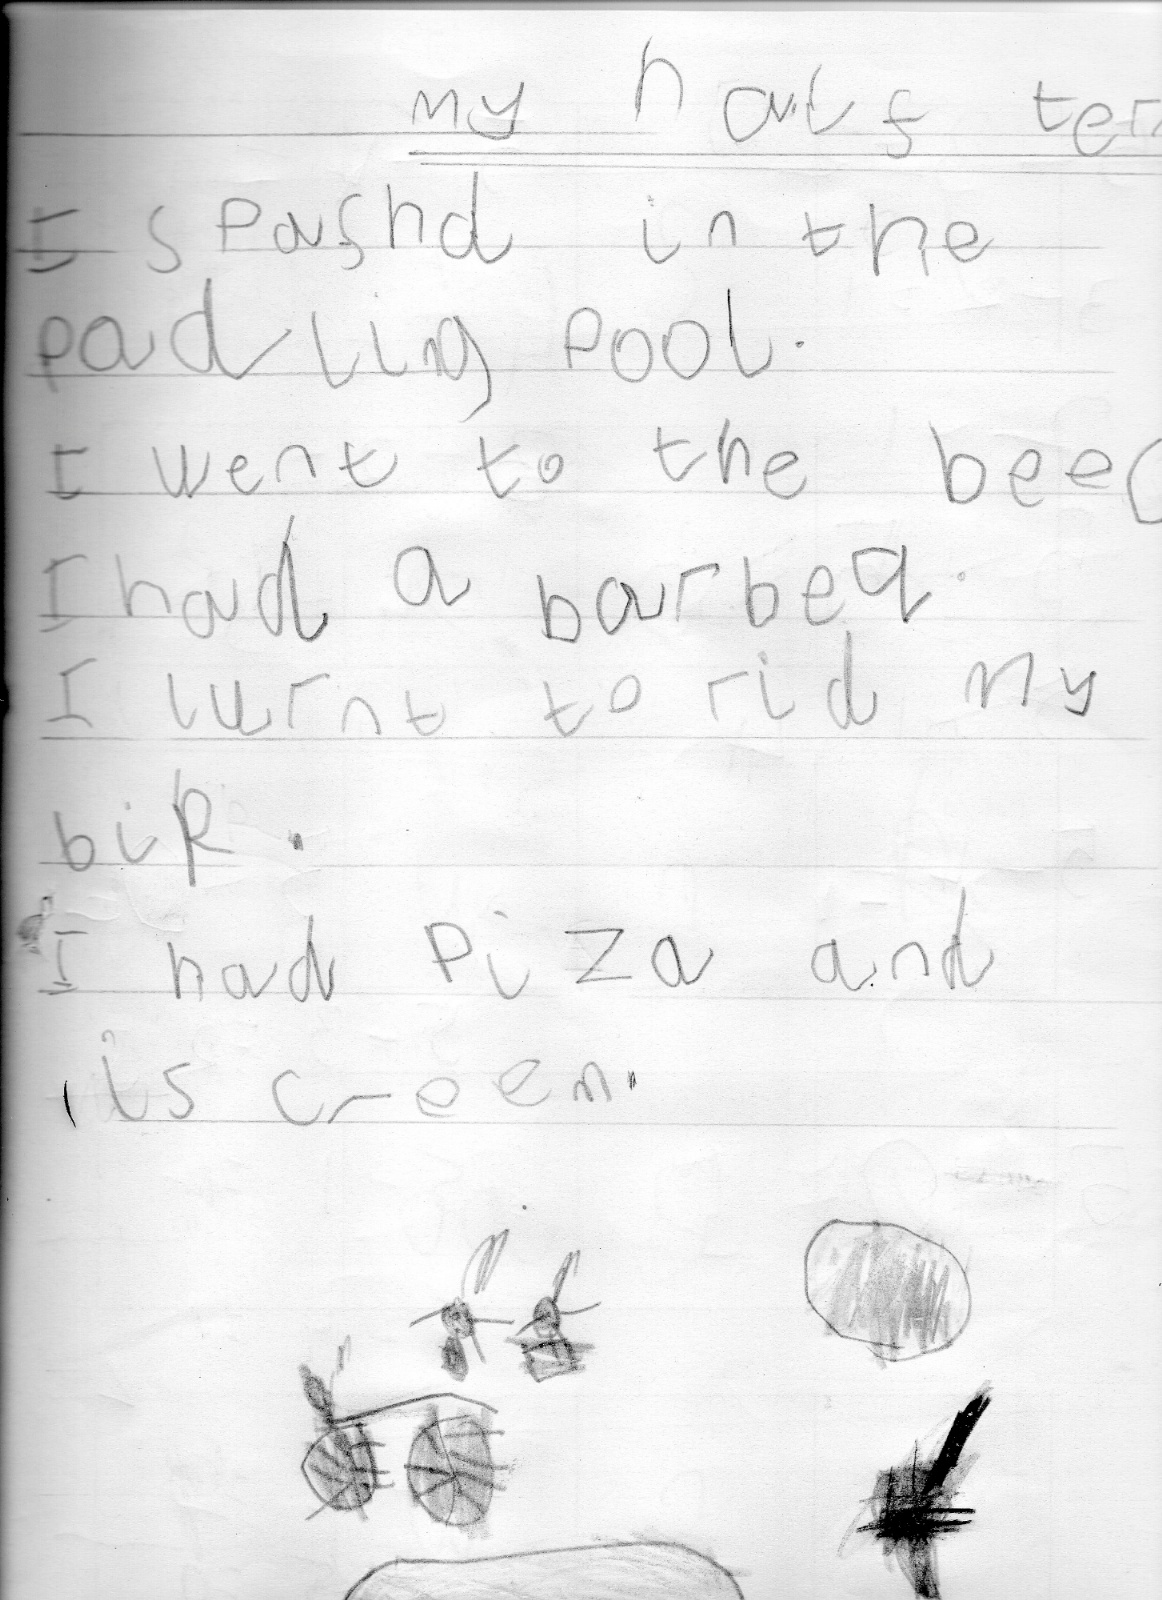 my half ter
I spashd in the
padling pool.
I went to the beec
I had a barbeq.
I lurnt to rid my
bik.
I had piza and
is creem.